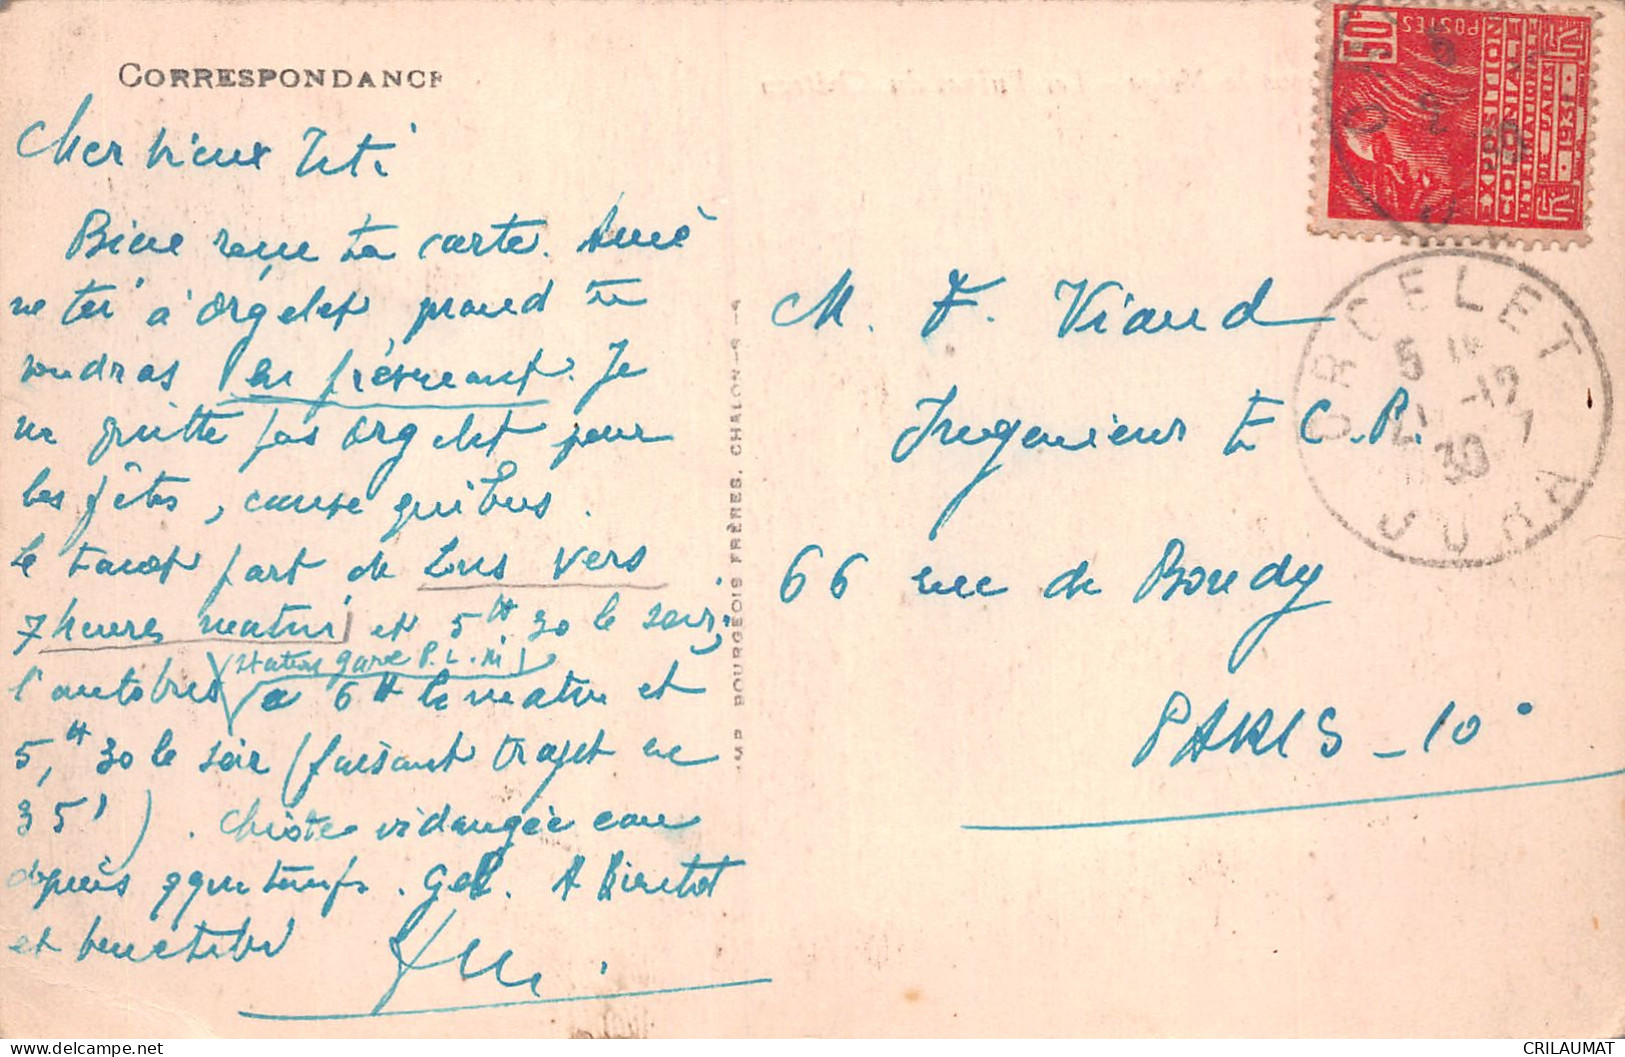 CORRESPONDANCE
Cher vieux Titi
Bien reçu ta carte. Amène
toi à Orgelet quand tu
voudras en prévenant. Je
ne quitte pas Orgelet pour
les fêtes, cause quibus.
Le tacot part de Lons vers
7 heures matin et 5H 30 le soir;
(station gare P.L.M)
l'autobus à 6H le matin et
5,H 30 le soir (faisant trajet en
35'). vidangée
depuis qque temps. A Bientot
et
IMP. BOURGEOIS FRÈRES, CHALON-S-S
M. F. Viaud
Ingenieur E C.P.
66 rue de Bondy
PARIS - 10°
50c
POSTES
EXPOSITION
COLONIALE
INTERNATIONALE
PARIS
1931
ORGELET
5
-12
30
JURA
CRILAUMAT